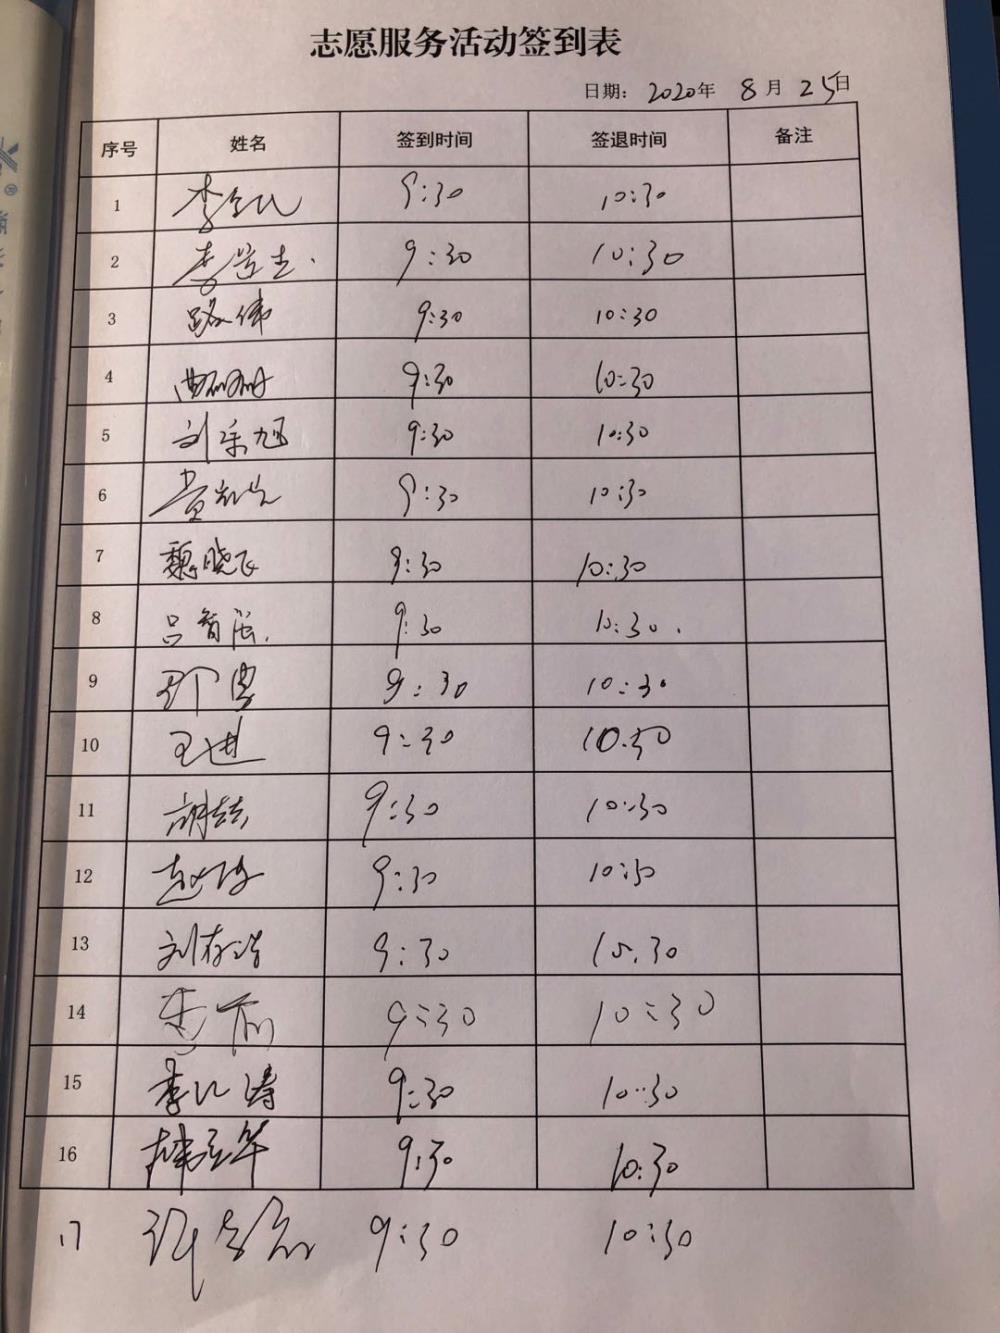 志愿服务活动签到表
日期: 2020年 8月 25日
序号 姓名 签到时间 签退时间 备注
1 9:30 10:30
2 9:30 10:30
3 路伟 9:30 10:30
4 9:30 10:30
5 刘乐旭 9:30 10:30
6 9:30 10:30
7 魏晓飞 9:30 10:30
8 9:30 10:30.
9 9:30 10:30
10 王进 9:30 10:30
11 9:30 10:30
12 9:30 10:30
13 刘存浩 9:30 10:30
14 9:30 10:30
15 9:30 10:30
16 韩立华 9:30 10:30
17 9:30 10:30